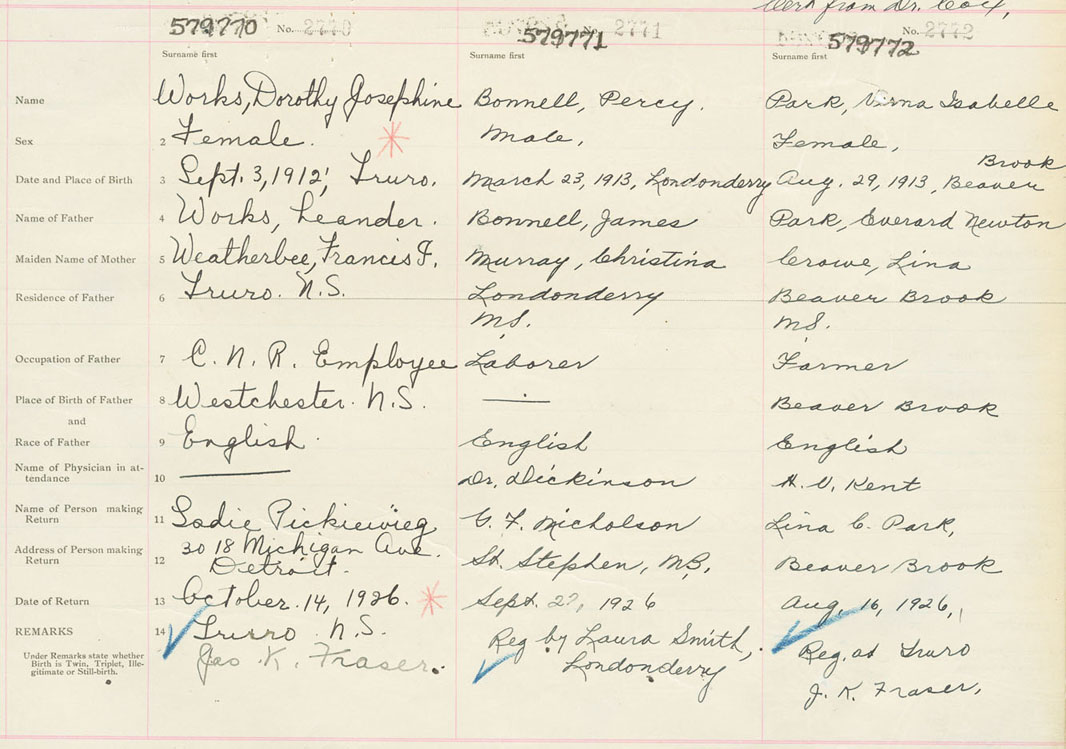 from Dr. Cox,
579770 No. 2770 579771 No. 2771 579772 No. 2772
Surname first Surname first Surname first
Name Works, Dorothy Josephine Bonnell, Percy. Park, Verna Isabelle
Sex 2 Female. Male, Female,
Brook
Date and Place of Birth 3 Sept. 3, 1912, Truro. March 23, 1913, Londonderry Aug. 29, 1913, Beaver
Name of Father 4 Works, Leander. Bonnell, James Park, Everard Newton
Maiden Name of Mother 5 Weatherbee, Francis F. Murray, Christina Crowe, Lina
Residence of Father 6 Truro. N.S. Londonderry Beaver Brook
N.S. N.S.
Occupation of Father 7 C. N. R. Employee Laborer Farmer
Place of Birth of Father 8 Westchester. N.S. Beaver Brook
and
Race of Father 9 English English English
Name of Physician in at-
tendance 10 Dr. Dickinson H. V. Kent
Name of Person making
Return 11 Sadie Nicholson Lina C. Park,
Address of Person making 3018 Michigan Ave.
Return 12 Detroit. St. Stephen, N.B., Beaver Brook
Date of Return 13 October. 14, 1926. Sept. 1926 Aug. 16, 1926,
REMARKS 14 Truro. N.S. Reg by Laura Smith, Reg. at Truro
Under Remarks state whether
Birth is Twin, Triplet, Ille-
gitimate or Still-birth. Jas. K. Fraser. Londonderry J. K. Fraser,